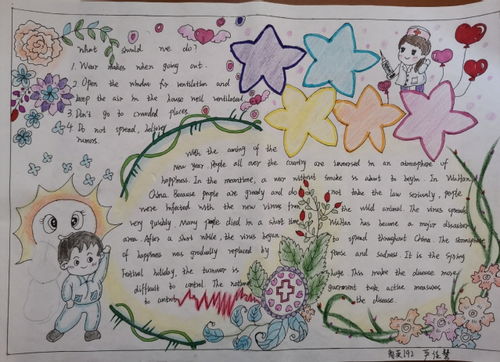 What should we do?
1. Wear makes when going out.
2. Open the window for ventilation and
keep the air in the house well ventilated
3. Don't go to crowded places
4. Do not spread, believe
rumors.
With the coming of the
new year People all over the country are immersed in an atmosphere of
happiness. In the meantime, a war without smoke is about to begin. In Wuhan,
China. Because people are greedy and do not take the law seriously, people
were infected with the new virus from the wild animal. The virus spreads
very quickly. Many people died in a short time. Wuhan has become a major disaster
area. After a short while, the virus began to spread throughout China. The atmosphere
of happiness was gradually replaced by and sadness. It is the Spring
Festival holiday, the turnover is huge. This make the disease more
difficult to control. The national government take active measures
to control the disease.
192